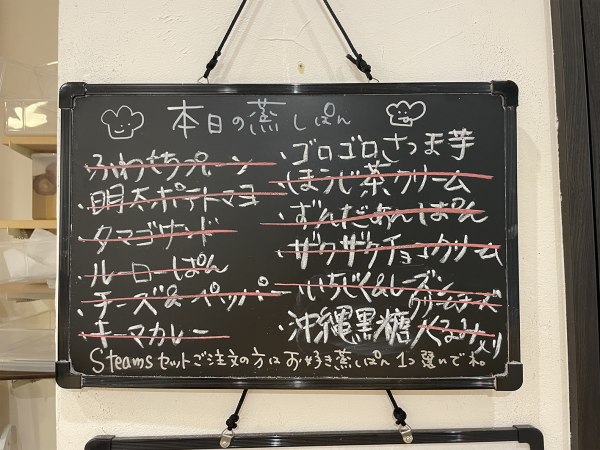 本日の蒸しぱん
・ふわもちプレーン
・明太ポテトマヨ
・タマゴサンド
・ルーローぱん
・チーズ&ペッパー
・キーマカレー
・ゴロゴロさつま芋
・ほうじ茶クリーム
・ずんだあんぱん
・ザクザクチョコクリーム
・いちじく&レーズン
クリームチーズ
・沖縄黒糖くるみ入り
Steamsセットご注文の方はお好き蒸しぱん1つ